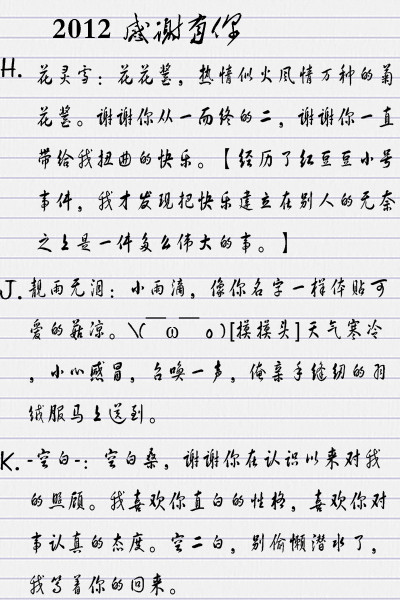 2012 感谢有你
H. 花灵雪：花花蜇，热情似火风情万种的菊
花蜇。谢谢你从一而终的二，谢谢你一直
带给我扭曲的快乐。【经历了红豆豆小号
事件，我才发现把快乐建立在别人的无奈
之上是一件多么伟大的事。】
J. 靓雨无泪：小雨滴，像你名字一样体贴可
爱的菇凉。\(￣ω￣o)[摸摸头]天气寒冷
，小心感冒，召唤一声，俺亲手缝纫的羽
绒服马上送到。
K. -空白-：空白桑，谢谢你在认识以来对我
的照顾。我喜欢你直白的性格，喜欢你对
事认真的态度。空二白，别偷懒潜水了，
我等着你的回来。